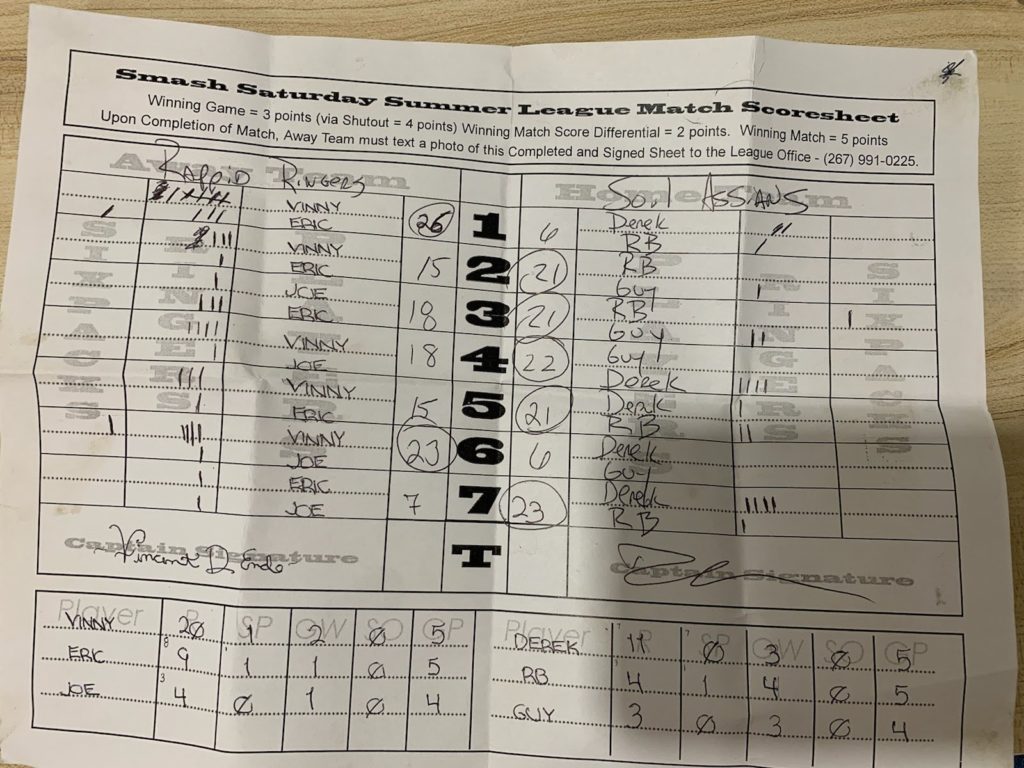 Smash Saturday Summer League Match Scoresheet
Winning Game = 3 points (via Shutout = 4 points) Winning Match Score Differential = 2 points. Winning Match = 5 points
Upon Completion of Match, Away Team must text a photo of this Completed and Signed Sheet to the League Office - (267) 991-0225.
Away Team RINGERS Home Team ASSIANS
VINNY 26 1 6 Derek
ERIC RB
VINNY 15 2 21 RB
ERIC GUY
JOE 18 3 21 RB
ERIC GUY
VINNY 18 4 22 GUY
JOE Derek
VINNY 15 5 21 Derek
ERIC RB
VINNY 23 6 6 Derek
JOE GUY
ERIC 7 7 23 Derek
JOE RB
SIXPACKS RINGERS T RINGERS SIXPACKS
Captain Signature Captain Signature
Player R SP GW SO GP Player R SP GW SO GP
VINNY 20 1 2 0 5 DEREK 11 0 3 0 5
ERIC 9 1 1 0 5 RB 4 1 4 0 5
JOE 4 0 1 0 4 GUY 3 0 3 0 4